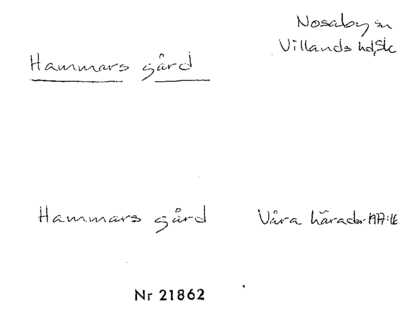 Nosaby sn
Villands hd, Sk
Hammars gård
Hammars gård Våra härader 1977:16
Nr 21862